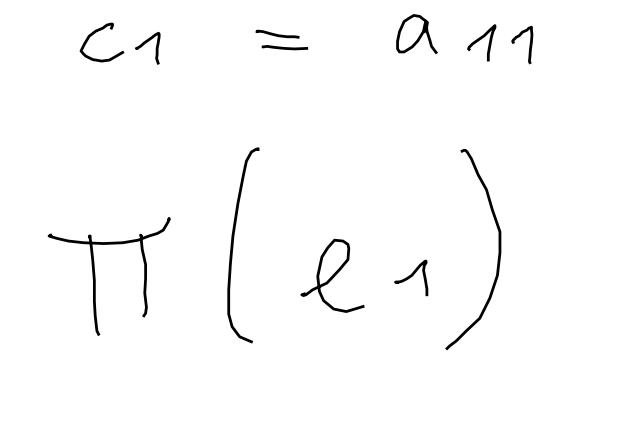 c1 = a11
π(e1)